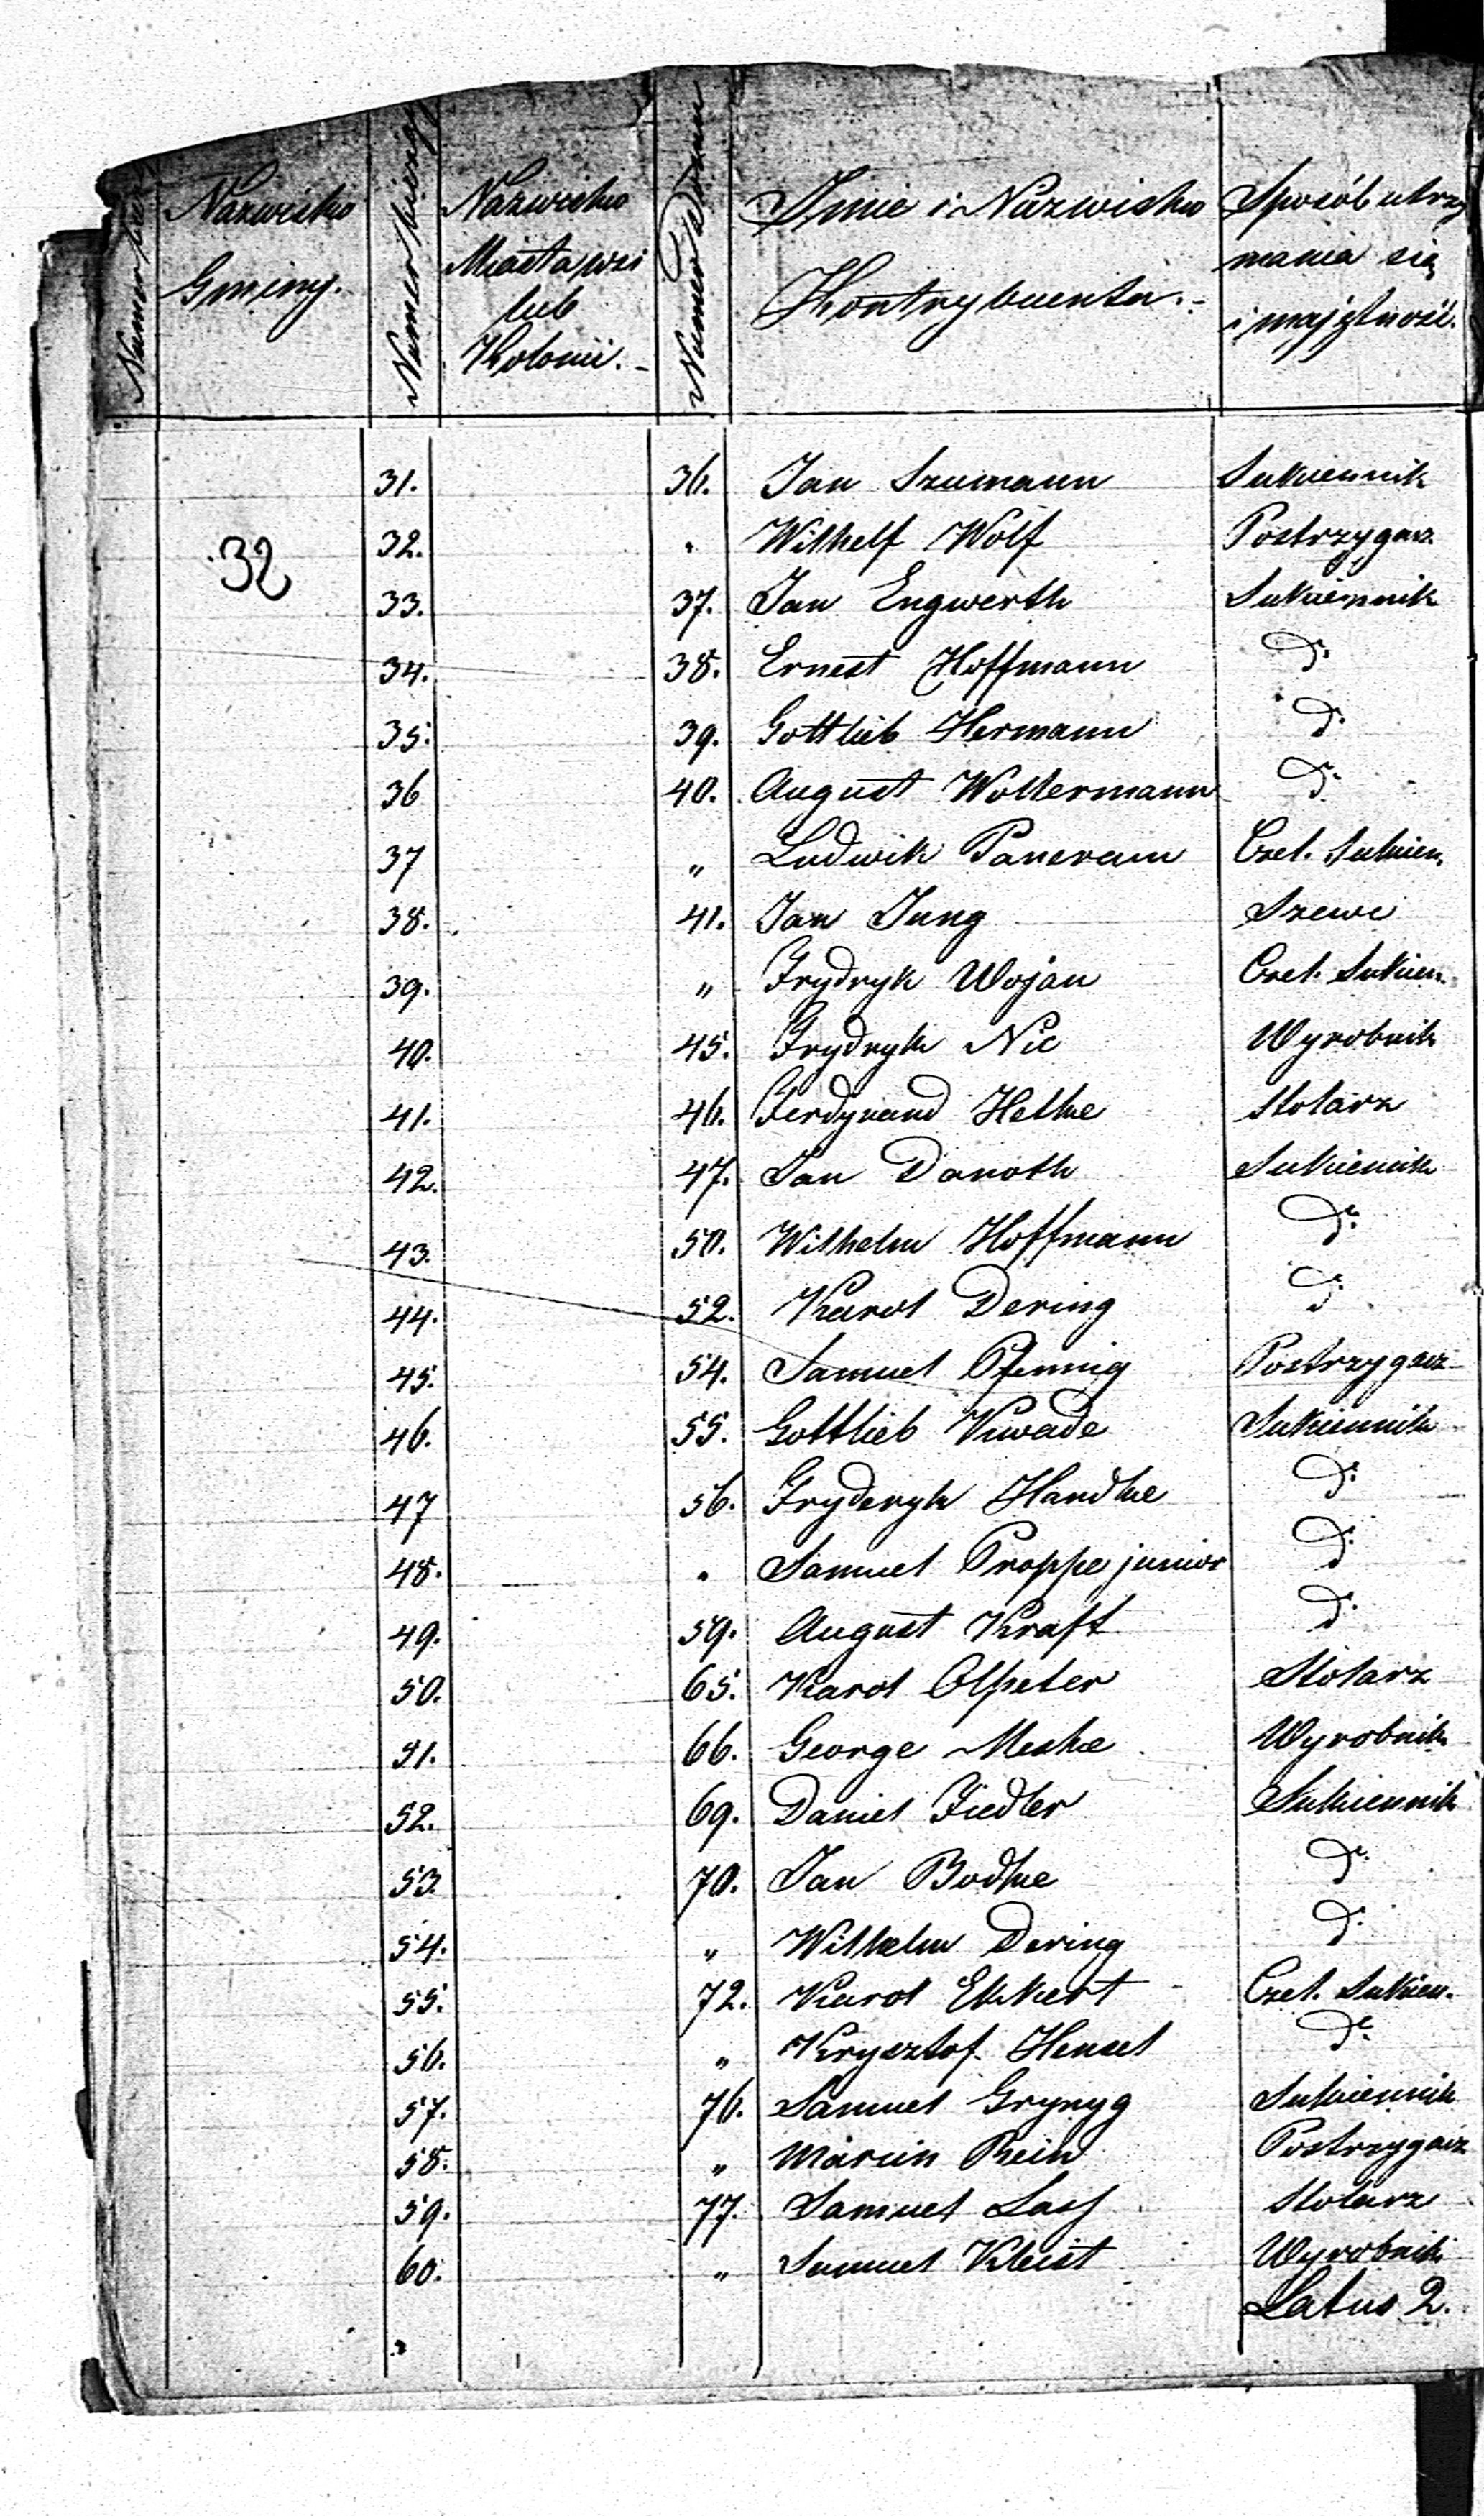 Numer Nazwisko Gminy. Numer bieżący Nazwisko Miasta, wsi lub Kolonii. Numer Domu Imie i Nazwisko Kontrybuenta. Sposób utrzymania się i majętność.
31. 36. Jan Szumann Sukiennik
32
32. " Wilhelf Wolf Postrzygacz
33. 37. Jan Engwerth Sukiennik
34. 38. Ernest Hoffmann do
35. 39. Gottlieb Hermann do
36 40. August Woltermann do
37 " Ludwik Paneram Czel. Sukien.
38. 41. Jan Jung Szewc
39. " Frydryk Wojan Czel. Sukien.
40. 45. Frydryk Nic Wyrobnik
41. 46. Ferdynand Hetke Stolarz
42. 47. Jan Danoth Sukiennik
43. 50. Wilhelm Hoffmann do
44. 52. Karol Dering do
45. 54. Samuel Pfennig Postrzygacz
46. 55. Gottlieb Kwade Sukiennik
47 56. Fryderyk Handke do
48. " Samuel Proppe junior do
49. 59. August Kraft do
50. 65. Karol Olpeter Stolarz
51. 66. George Meske Wyrobnik
52. 69. Daniel Fiedler Sukiennik
53. 70. Jan Bodke do
54. " Wilhelm Dering do
55. 72. Karol Ekkert Czel. Sukien.
56. " Krysztof Hensel do
57. 76. Samuel Grynyg Sukiennik
58. " Marcin Rein Postrzygacz
59. 77. Samuel Stolarz
60. " Samuel Kleist Wyrobnik
Latus 2.